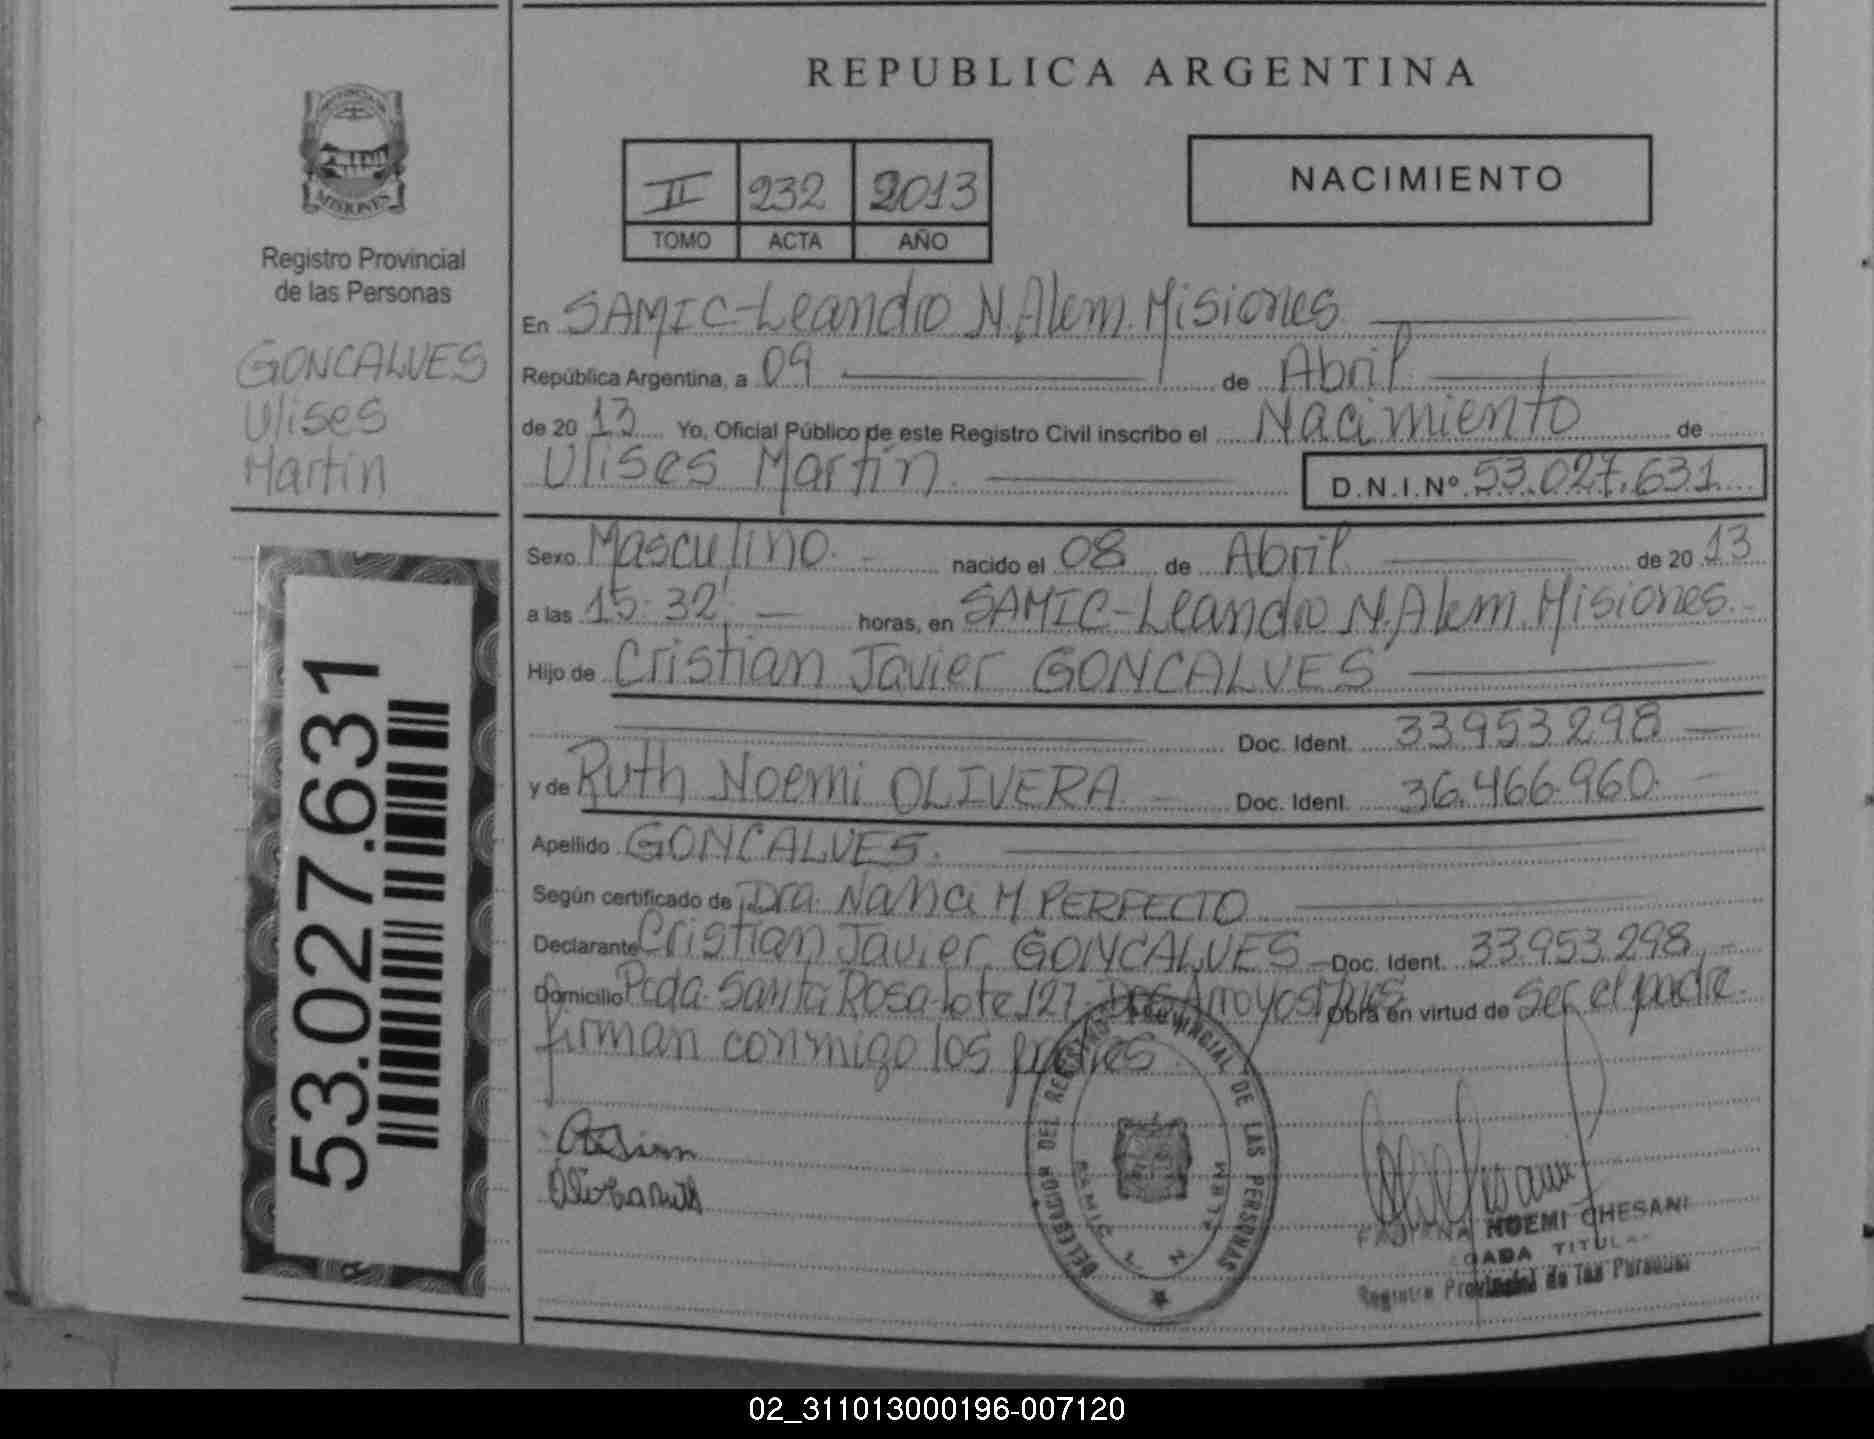 REPUBLICA ARGENTINA
PROVINCIA DE
MISIONES
Registro Provincial
de las Personas
GONCALVES
Ulises
Martin
53.027.631
II 232 2013
TOMO ACTA AÑO
NACIMIENTO
En SAMIC-Leandro N. Alem. Misiones
República Argentina, a 09 de Abril
de 20 13 Yo, Oficial Público de este Registro Civil inscribo el Nacimiento de
Ulises Martin. D.N.I.Nº 53.027.631
Sexo Masculino. nacido el 08 de Abril de 20 13
a las 15:32 horas, en SAMIC-Leandro N. Alem. Misiones.
Hijo de Cristian Javier GONCALVES
Doc. Ident. 33953298
y de Ruth Noemi OLIVERA Doc. Ident. 36.466.960
Apellido GONCALVES.
Según certificado de Dra. M. PERFECTO
Declarante Cristian Javier GONCALVES Doc. Ident. 33953.298
Domicilio Pcda. Santa Rosa-Lote 127. Dos Arroyos Obra en virtud de Ser el padre.
firman conmigo los padres
DELEGACION DEL REGISTRO PROVINCIAL DE LAS PERSONAS
SAMIC
Cristian
Olivera Ruth
NOEMI CHESANI
TITULAR
Registro Provincial de las Personas
02_311013000196-007120